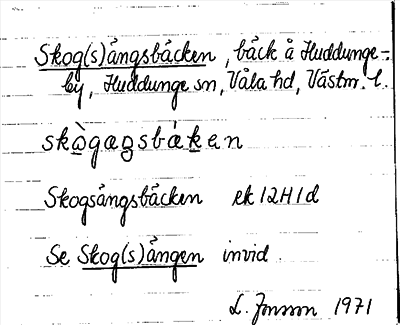 Skog(s)ångsbäcken, bäck å Huddunge-
by, Huddunge sn, Våla hd, Västm. l.
skògaŋsbáken
Skogsångsbäcken ek 12H1d
Se Skog(s)ången invid
L. Jonsson 1971